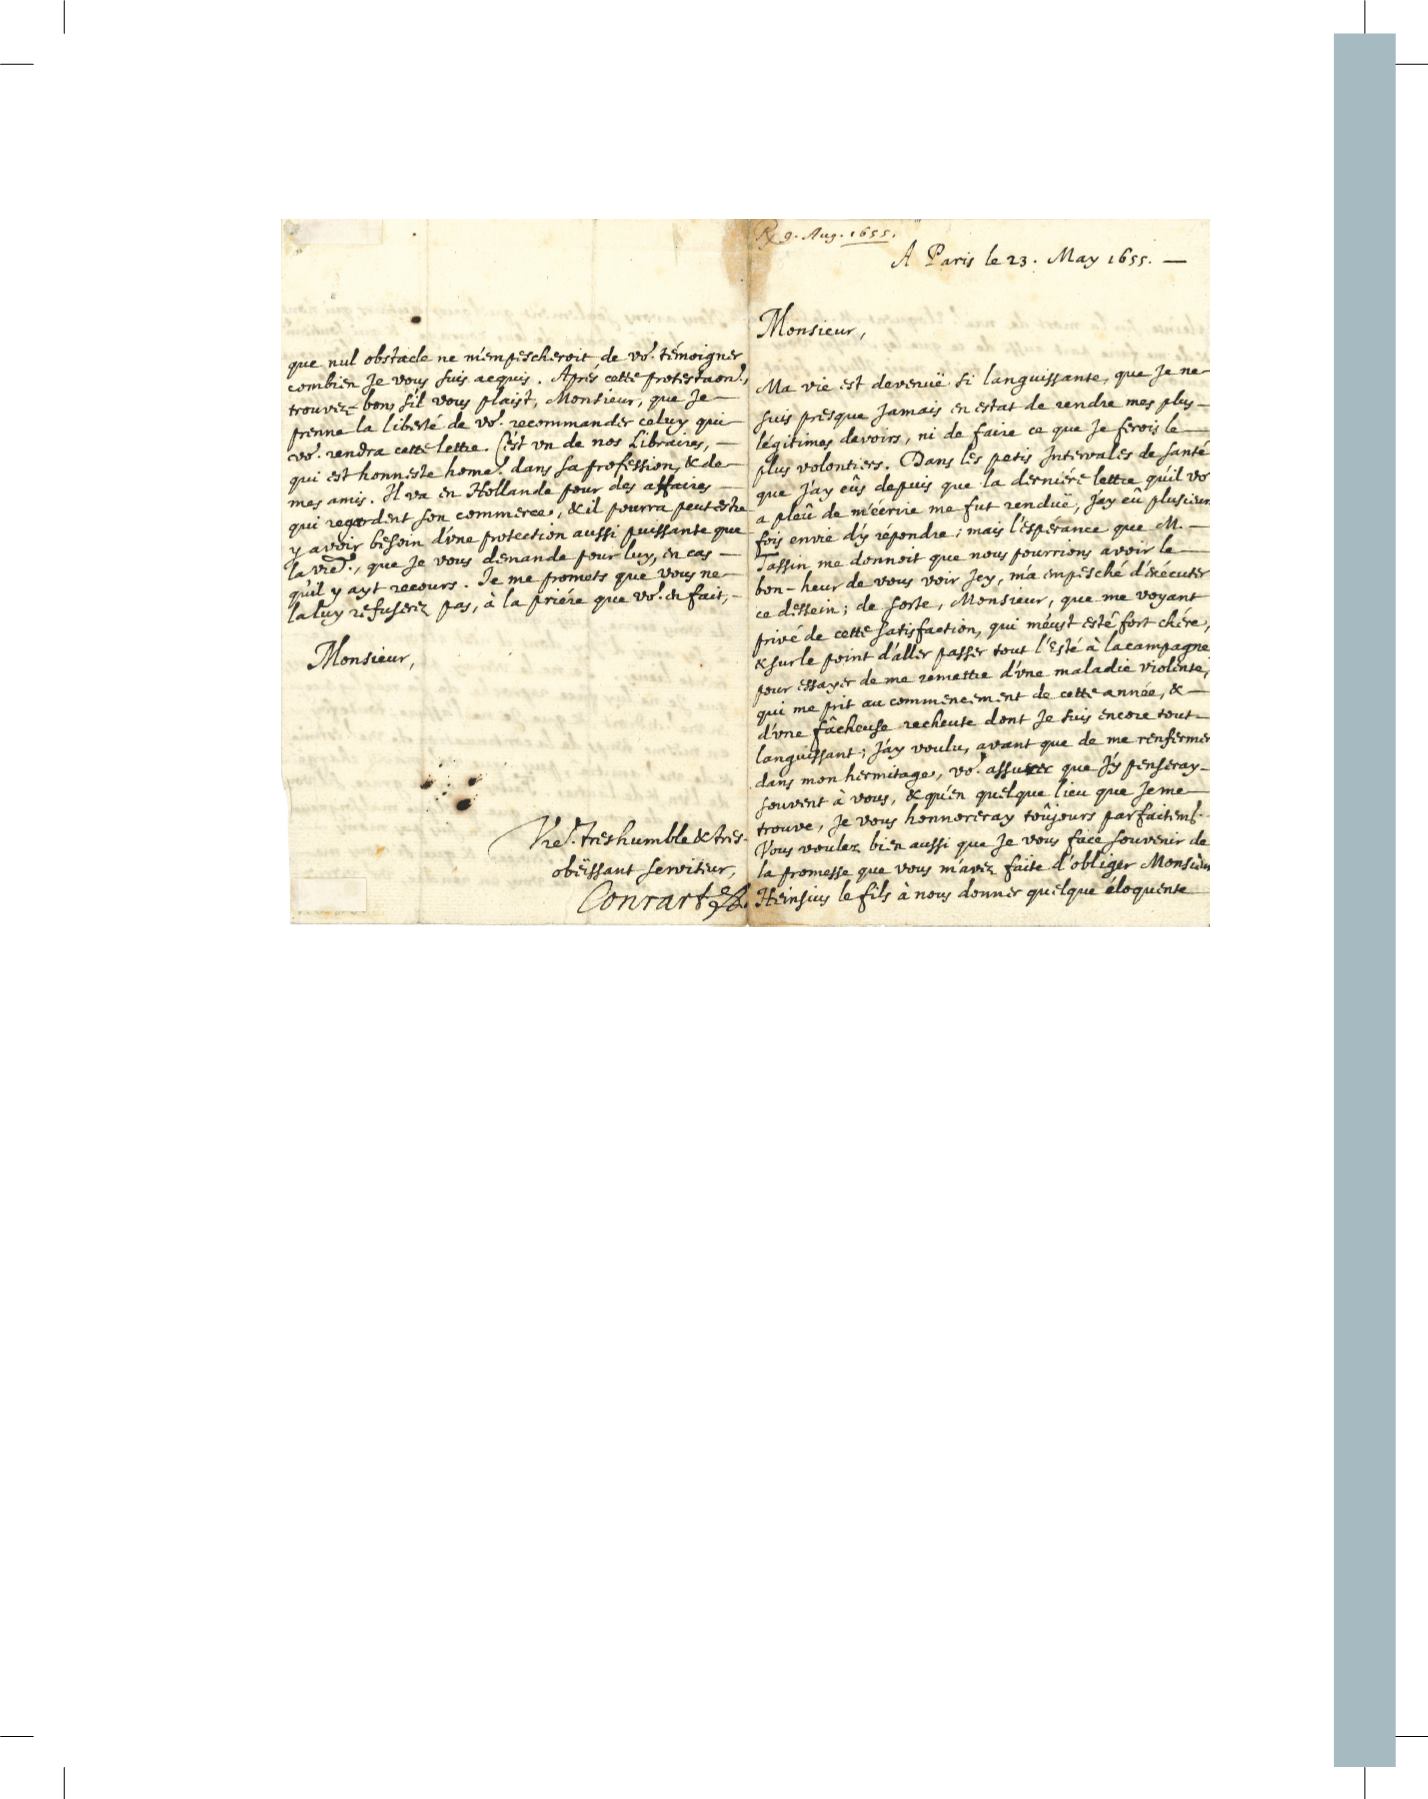 R 9. Aug. 1655.
A Paris le 23. May 1655. —
Monsieur,
Ma vie est devenuë si languissante, que Je ne
suis presque Jamais en estat de rendre mes plus
légitimes devoirs, ni de faire ce que Je ferois le
plus volontiers. Dans les petis Intervales de santé
que J'ay eûs depuis que la derniére lettre qu'il vo
a pleû de m'écrire me fut renduë, J'ay eû plusieur
fois envie d'y répondre; mais l'espérance que M.
Tassin me donnoit que nous pourrions avoir le
bon-heur de vous voir Icy, m'a empesché d'exécuter
ce dessein; de sorte, Monsieur, que me voyant
privé de cette satisfaction, qui m'eust esté fort chére,
& sur le point d'aller passer tout l'Esté à la campagne
pour essayer de me remettre d'vne maladie violente,
qui me prit au commencement de cette année, &
d'vne fâcheuse recheute dont Je suis encore tout
languissant; J'ay voulu, avant que de me renfermer
dans mon hermitage, vo.⁹ assurer que J'y penseray
souvent à vous, & qu'en quelque lieu que Je me
trouve, Je vous honnoreray toûjours parfaitemt.
Vous voulez bien aussi que Je vous face souvenir de
la promesse que vous m'avez faite d'obliger Monsieur
Heinsius le fils à nous donner quelque éloquente
que nul obstacle ne m'empescheroit de vo.⁹ témoigner
combien Je vous suis acquis. Aprés cette protestaon.,
trouvez bon, s'il vous plaist, Monsieur, que Je
prenne la liberté de vo.⁹ recommander celuy qui
vo.⁹ rendra cette lettre. C'est vn de nos Libraires,
qui est honneste home. dans sa profession, & de
mes amis. Il va en Hollande pour des affaires
qui regardent son commerce, & il pourra peut estre
y avoir besoin d'vne protection aussi puissante que
la vre., que Je vous demande pour luy, en cas
qu'il y ayt recours. Je me promets que vous ne
la luy refuserez pas, à la priére que vo.⁹ en fait,
Monsieur,
Vre. tres humble & tres
obëissant serviteur,
Conrart